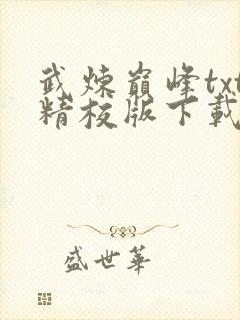 武炼巅峰txt
精校版下载
盛世華